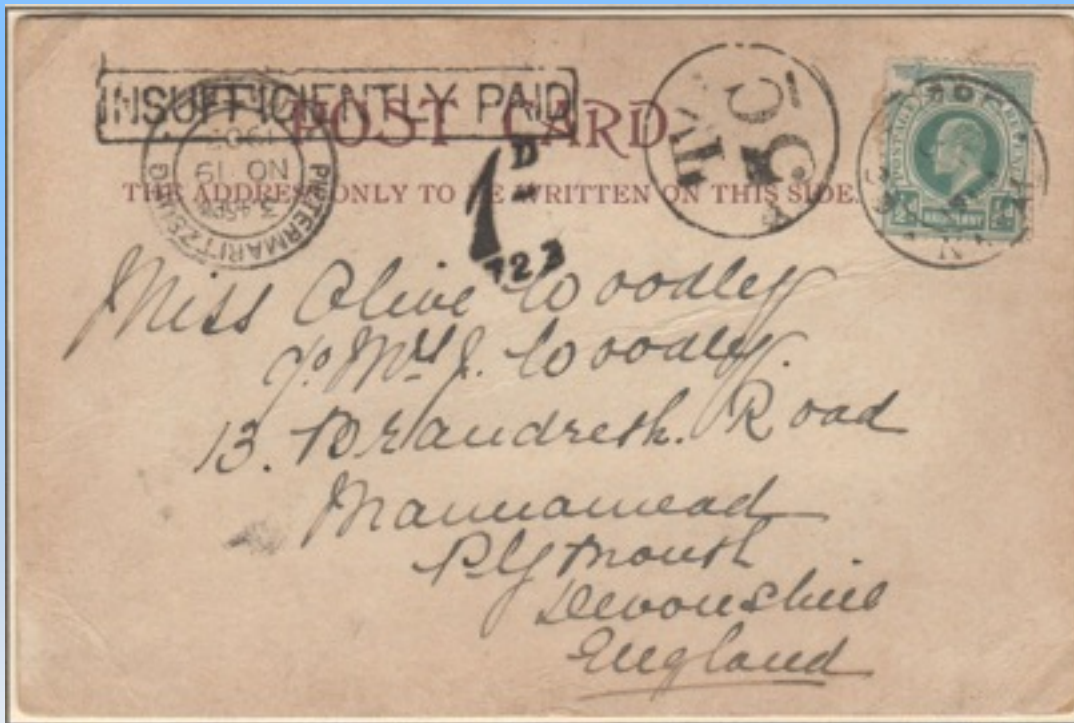 INSUFFICIENTLY PAID
POST CARD
THE ADDRESS ONLY TO BE WRITTEN ON THIS SIDE.
PIETERMARITZBURG
3.45PM
NO 19
1905
1D
723
T
5C
POSTAGE
HALFPENNY
Miss Olive Woodley
c/o Mrs J. Woodley.
13. Brandreth. Road
Mannamead
Plymouth
Devonshire
England